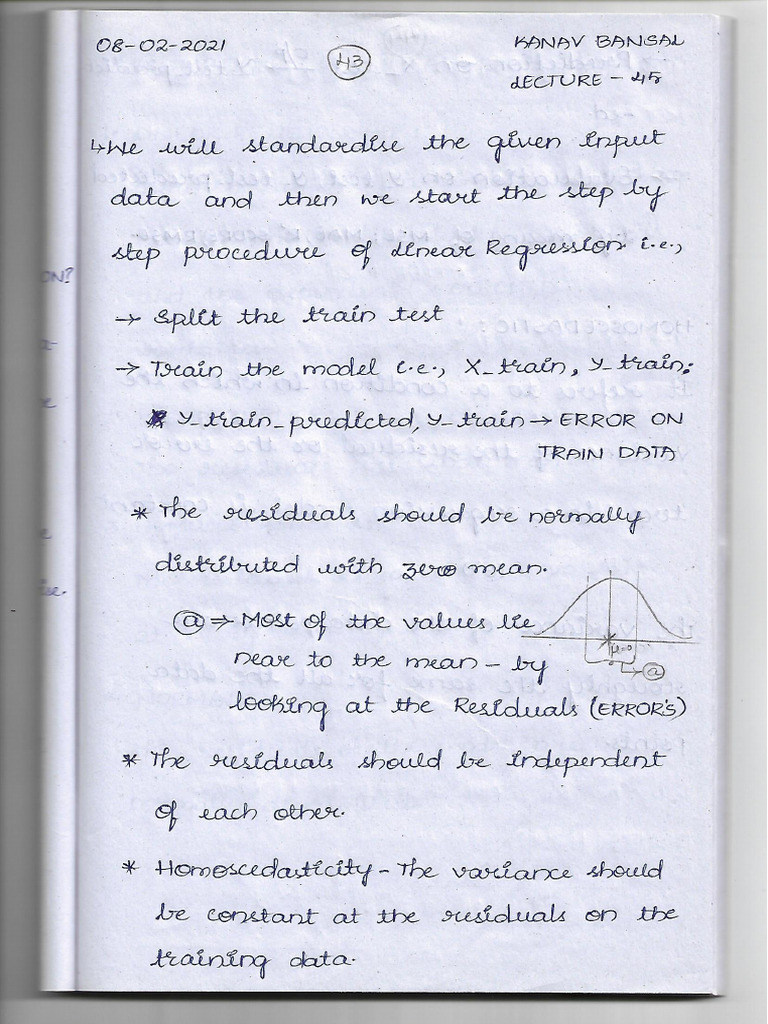 08-02-2021
43
KANAV BANSAL
LECTURE - 45
↳ We will standardise the given input
data and then we start the step by
step procedure of Linear Regression i.e.,
→ Split the train test
→ Train the model i.e., X_train, Y_train;
Y_train_predicted, Y_train → ERROR ON
TRAIN DATA
* The residuals should be normally
distributed with zero mean.
ⓐ ⇒ Most of the values lie
near to the mean - by
looking at the Residuals (ERROR'S)
μ=0
ⓐ
* The residuals should be independent
of each other.
* Homoscedasticity - The variance should
be constant at the residuals on the
training data.
ON?